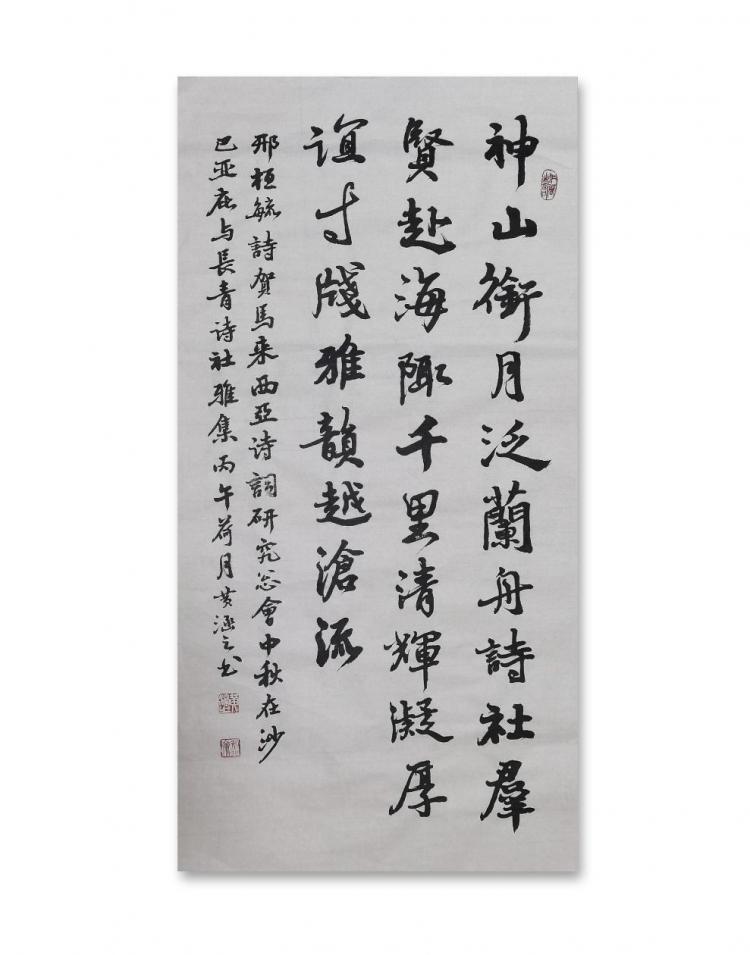 神山銜月泛蘭舟詩社羣
賢赴海陬千里清輝凝厚
誼寸牋雅韻越滄流
邢桓毓詩贺馬来西亞诗詞研究总會中秋在沙
巴亚庇与長青诗社雅集丙午荷月黄涵之书